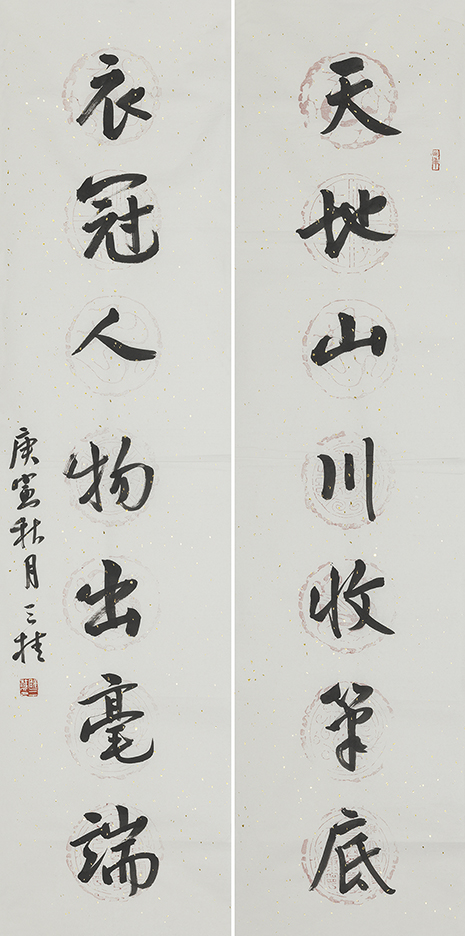 天地山川收笔底
衣冠人物出毫端
庚寅秋月三桂